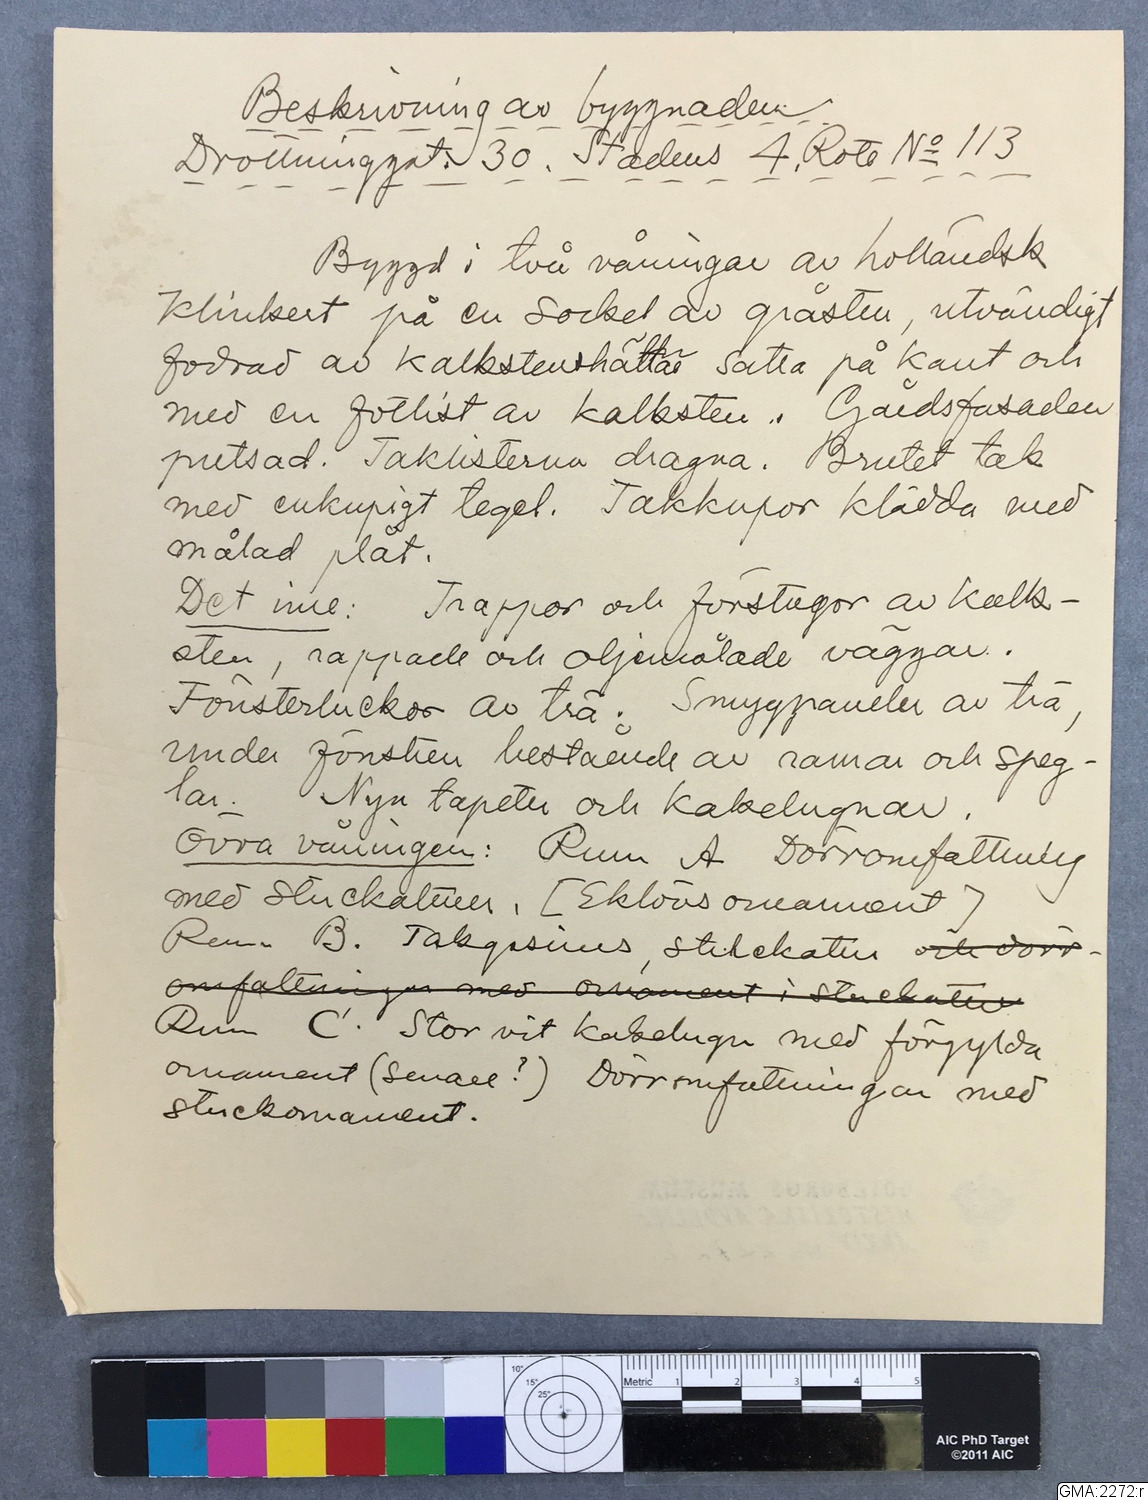 Beskrivning av byggnaden
Drottninggat. 30. Stadens 4. Rote No 113
Byggd i två våningar av holländsk
klinkert på en sockel av gråsten, utvändigt
fodrad av kalkstenshällar satta på kant och
med en fotlist av kalksten. Gårdsfasaden
putsad. Taklisterna dragna. Brutet tak
med enkupigt tegel. Takkupor klädda med
målad plåt.
Det inre: Trappor och förstugor av kalk-
sten, rappade och oljemålade väggar.
Fönsterluckor av trä. Smygpaneler av trä,
under fönstren bestående av ramar och speg-
lar. Nya tapeter och kakelugnar.
Övra våningen: Rum A Dörromfattning
med stuckaturer. [Eklövsornament]
Rum B. Takgesims, stuckatur och dörr-
omfattningar med ornament i stuckatur
Rum C. Stor vit kakelugn med förgylda
ornament (senare?) Dörromfattningar med
stuckornament.
GÖTEBORGS MUSEUM
HISTORISKA AVDELN.
ARKIV
10°
15°
25°
Metric 1 2 3 4 5
AIC PhD Target
©2011 AIC
GMA:2272:r